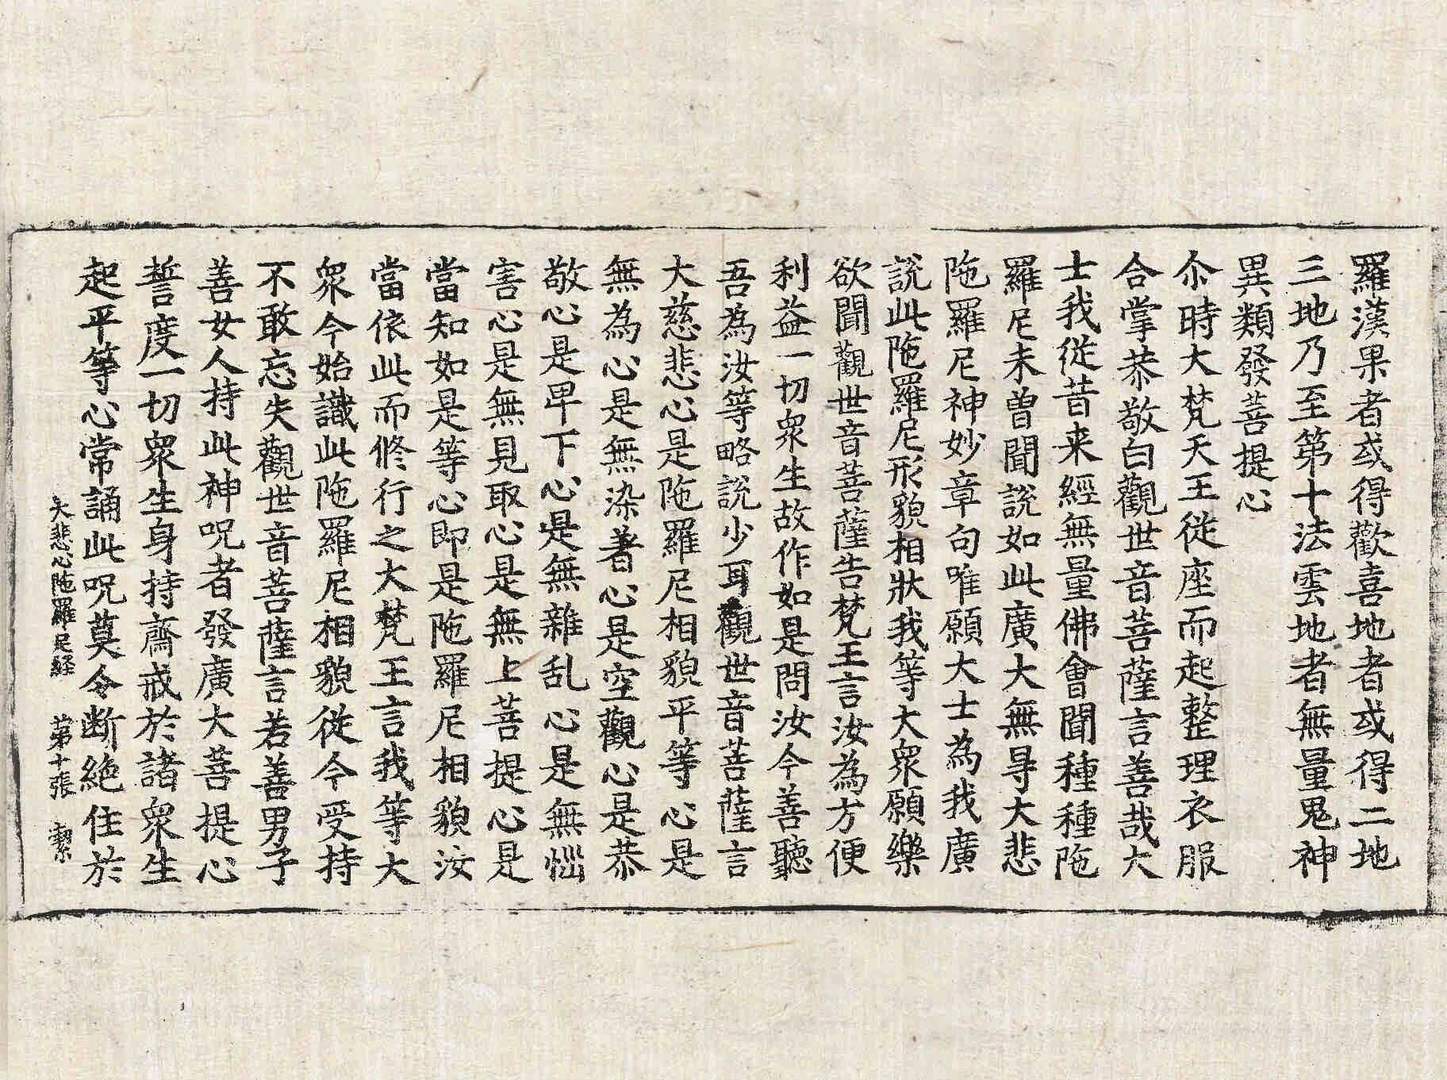 羅漢果者或得歡喜地者或得二地
三地乃至第十法雲地者無量鬼神
異類發菩提心
尒時大梵天王従座而起整理衣服
合掌恭敬白觀世音菩薩言善哉大
士我従昔来經無量佛會聞種種陁
羅尼未曽聞說如此廣大無㝵大悲
陁羅尼神妙章句唯願大士為我廣
說此陁羅尼形貌相狀我等大衆願樂
欲聞觀世音菩薩告梵王言汝為方便
利益一切衆生故作如是問汝今善聽
吾為汝等略說少耳觀世音菩薩言
大慈悲心是陁羅尼相貌平等心是
無為心是無染著心是空觀心是恭
敬心是卑下心是無雜乱心是無惱
害心是無見取心是無上菩提心是
當知如是等心即是陁羅尼相貌汝
當依此而修行之大梵王言我等大
衆今始識此陁羅尼相貌従今受持
不敢忘失觀世音菩薩言若善男子
善女人持此神呪者發廣大菩提心
誓度一切衆生身持齋戒於諸衆生
起平等心常誦此呪莫令断絶住於
大悲心陁羅尼経 苐十張 㓗